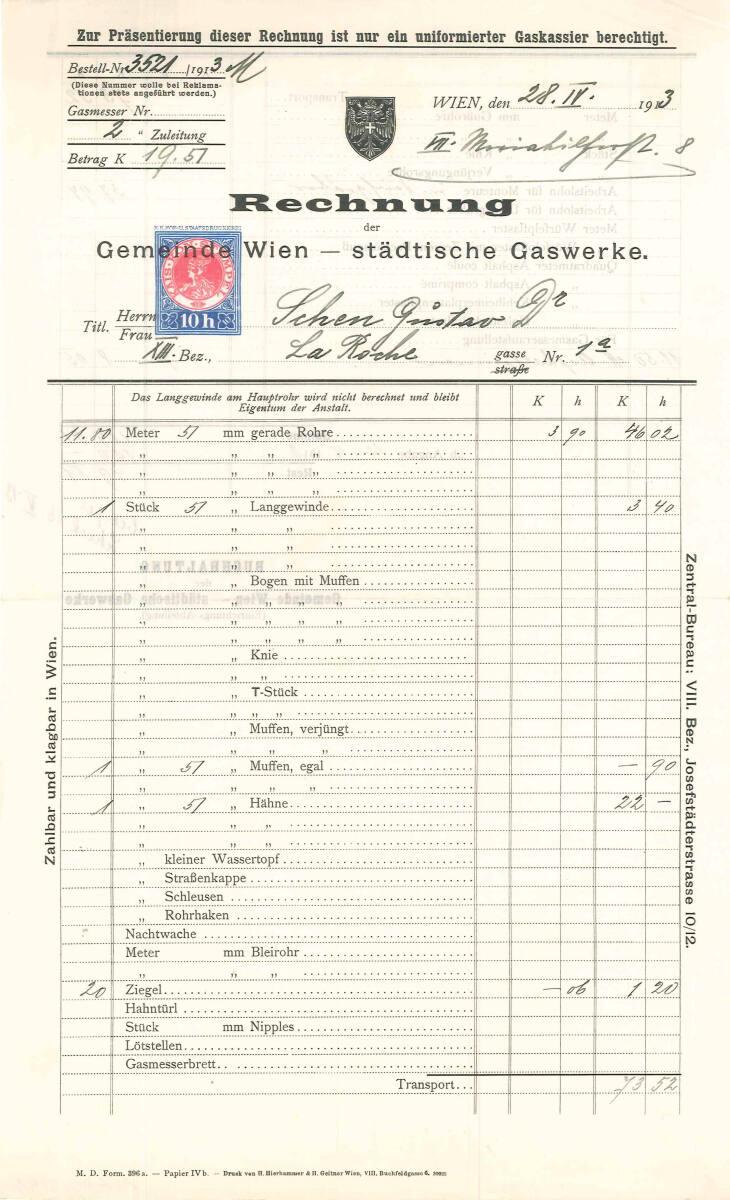 Zur Präsentierung dieser Rechnung ist nur ein uniformierter Gaskassier berechtigt.
Bestell-Nr. 3521 /1913 M
(Diese Nummer wolle bei Reklama-
tionen stets angeführt werden.)
Gasmesser Nr.
2 " Zuleitung
Betrag K 19.51
WIEN, den 28. IV. 1913
VII. Mariahilferst. 8
Rechnung
der
Gemeinde Wien — städtische Gaswerke.
K.K. HOF-U. STAATSDRUCKEREI
10 h
Titl. Herrn
Frau
Schen Gustav Dr
XIII. Bez., La Roche gasse
straße Nr. 1a
Das Langgewinde am Hauptrohr wird nicht berechnet und bleibt
Eigentum der Anstalt.
K h K h
11.80 Meter 51 mm gerade Rohre 3 90 46 02
„ „ „ „
„ „ „ „
„ „ „ „
1 Stück 51 „ Langgewinde 3 40
„ „ „
„ „ „
„ „ „
„ „ Bogen mit Muffen
„ „ „ „ „
„ „ „ „ „
„ „ „ „ „
„ „ Knie
„ „ „
„ „ T-Stück
„ „ „ „
„ „ Muffen, verjüngt
„ „ „ „
1 „ 51 „ Muffen, egal — 90
„ „ „ „
1 „ 51 „ Hähne 22 —
„ „ „
„ „ „
„ kleiner Wassertopf
„ Straßenkappe
„ Schleusen
„ Rohrhaken
Nachtwache
Meter mm Bleirohr
„ „ „
20 Ziegel — 06 1 20
Hahntürl
Stück mm Nipples
Lötstellen
Gasmesserbrett
Transport 73 52
Zahlbar und klagbar in Wien.
Zentral-Bureau: VIII. Bez., Josefstädterstrasse 10/12.
M. D. Form. 396 a. — Papier IV b. — Druck von H. Hierhammer & H. Geitner Wien, VIII. Buchfeldgasse 6.